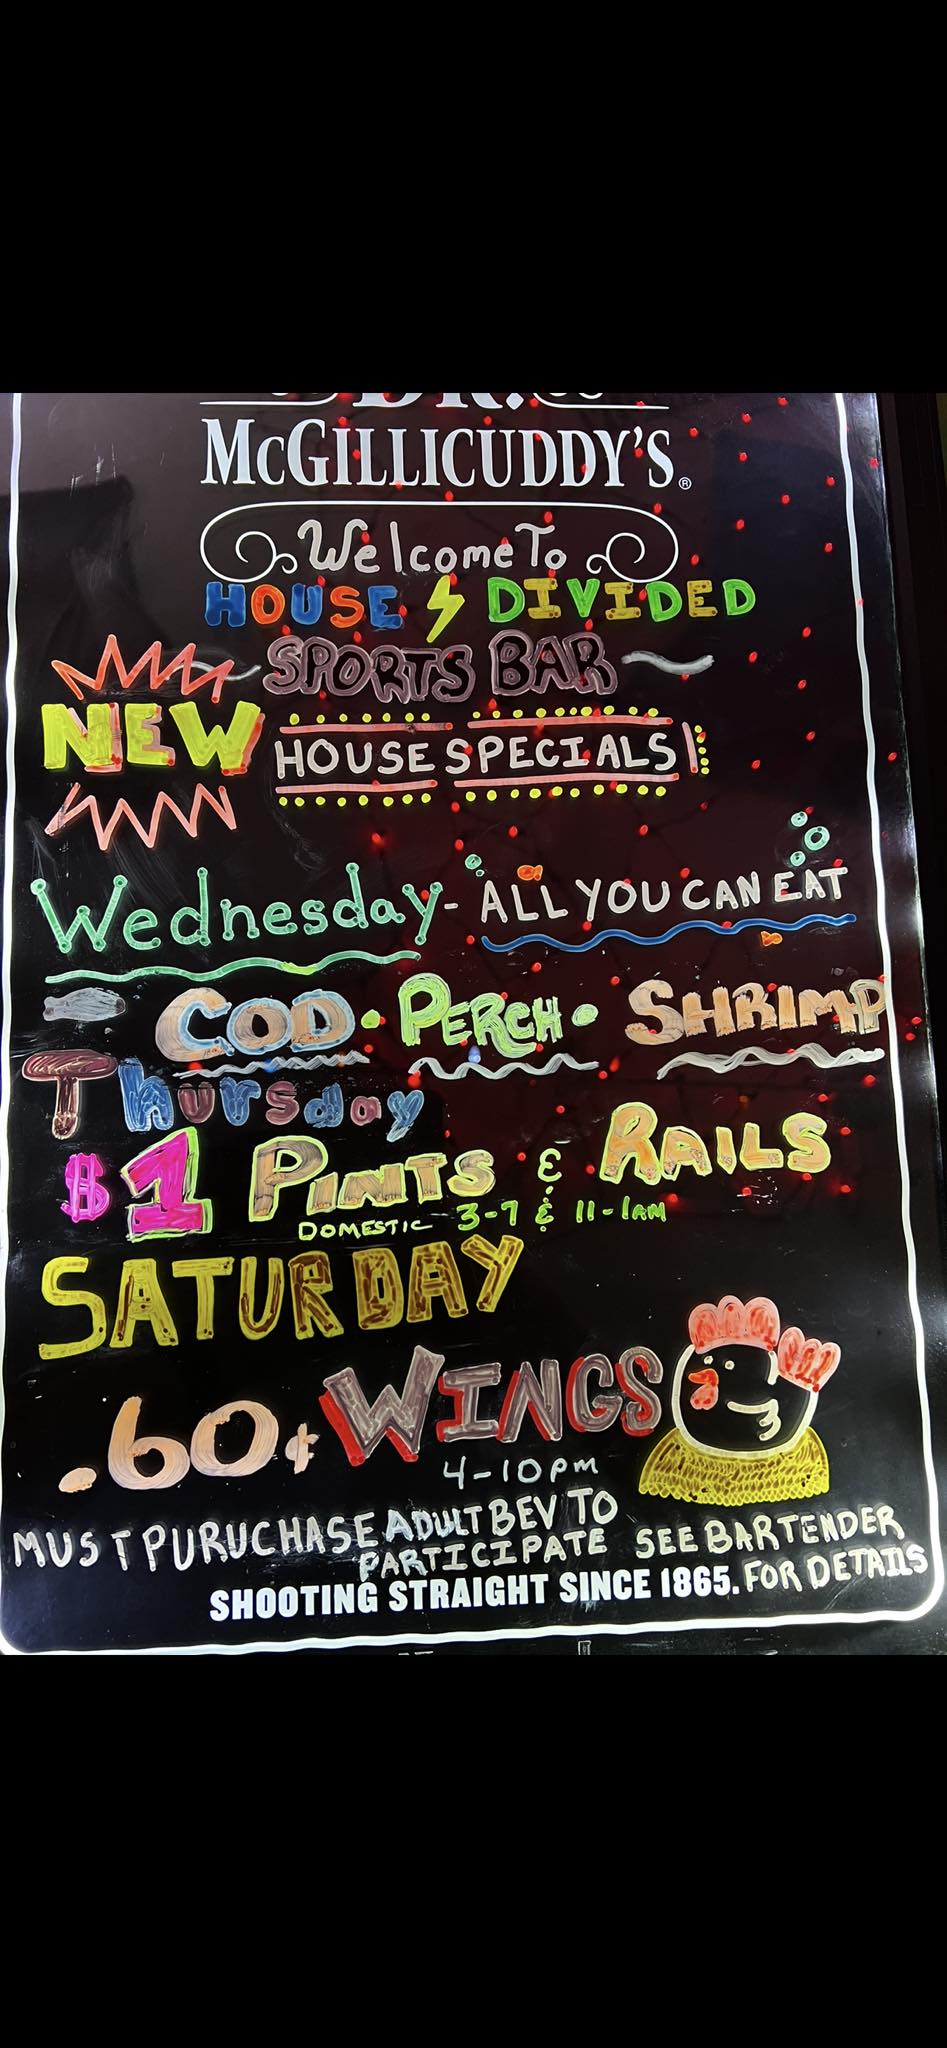 DR.
McGILLICUDDY'S®
Welcome To
HOUSE DIVIDED
SPORTS BAR
NEW HOUSE SPECIALS
Wednesday - ALL YOU CAN EAT
COD • PERCH • SHRIMP
Thursday
$1 PINTS & RAILS
DOMESTIC 3-7 & 11-1AM
SATURDAY
.60¢ WINGS
4-10PM
MUST PURUCHASE ADULT BEV TO
PARTICIPATE SEE BARTENDER
FOR DETAILS
SHOOTING STRAIGHT SINCE 1865.